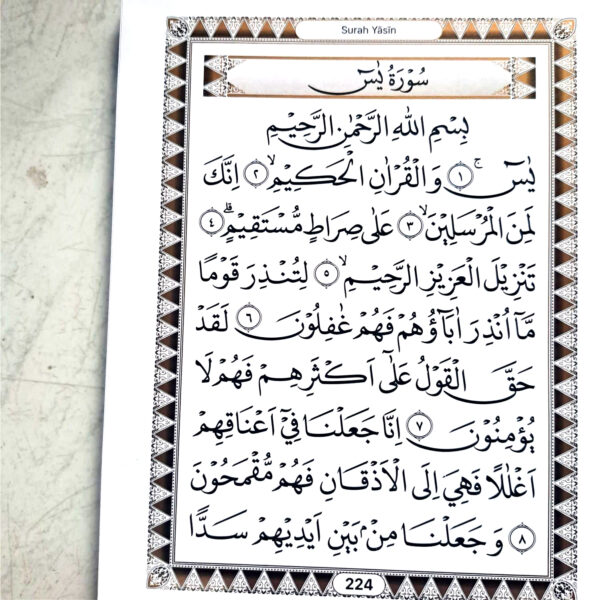 Surah Yāsīn
سُوْرَةُ يٰسۤ
بِسْمِ اللهِ الرَّحْمٰنِ الرَّحِيْمِ
يٰسۤ ۚ ۝١ وَالْقُرْاٰنِ الْحَكِيْمِۙ ۝٢ اِنَّكَ
لَمِنَ الْمُرْسَلِيْنَۙ ۝٣ عَلٰى صِرَاطٍ مُّسْتَقِيْمٍۗ ۝٤
تَنْزِيْلَ الْعَزِيْزِ الرَّحِيْمِۙ ۝٥ لِتُنْذِرَ قَوْمًا
مَّآ اُنْذِرَ اٰبَاۤؤُهُمْ فَهُمْ غٰفِلُوْنَ ۝٦ لَقَدْ
حَقَّ الْقَوْلُ عَلٰٓى اَكْثَرِهِمْ فَهُمْ لَا
يُؤْمِنُوْنَ ۝٧ اِنَّا جَعَلْنَا فِيْٓ اَعْنَاقِهِمْ
اَغْلٰلًا فَهِيَ اِلَى الْاَذْقَانِ فَهُمْ مُّقْمَحُوْنَ
۝٨ وَجَعَلْنَا مِنْۢ بَيْنِ اَيْدِيْهِمْ سَدًّا
224